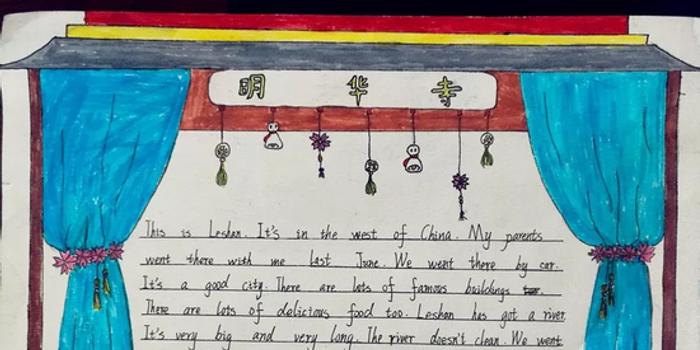 明华寺
This is Leshan. It's in the west of China. My parents
went there with me last June. We went there by car.
It's a good city. There are lots of famous buildings
There are lots of delicious food too. Leshan has got a river
It's very big and very long. The river doesn't clean. We went